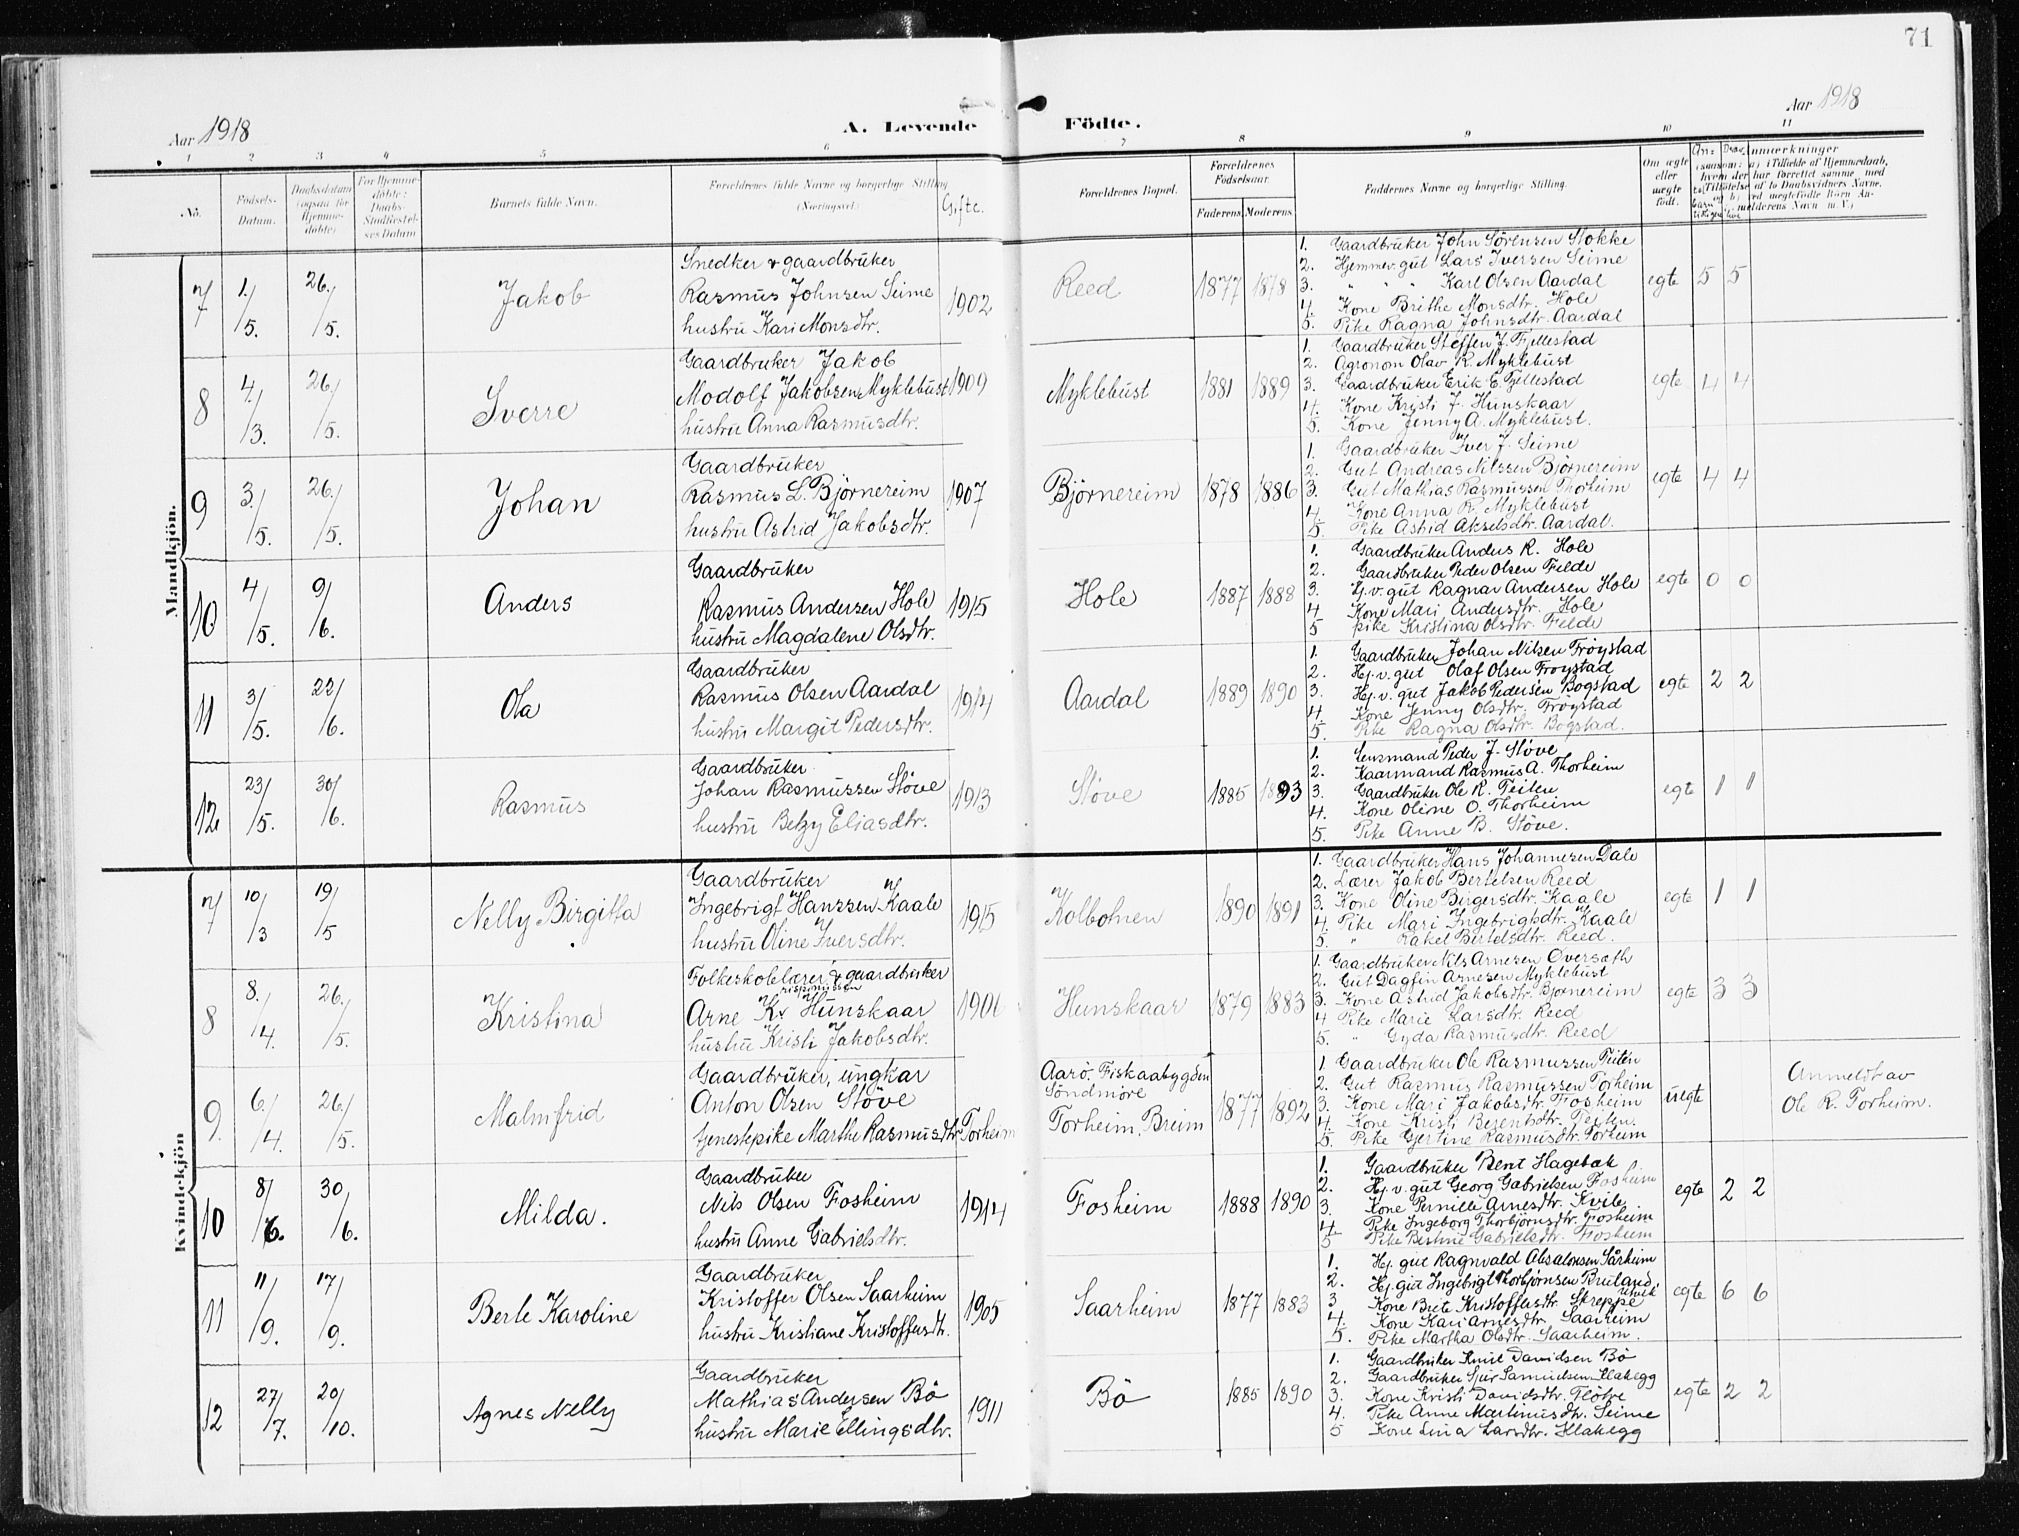 71
Aar 1918
A. Levende Födte.
Aar 1918
1 2 3 4 5 6 7 8 9 10 11
No.
Födsels-Datum.
Daabsdatum (ogsaa for Hjemmedöbte)
For Hjemmedöbte: Daabs-Stadfæstelses Datum
Barnets fulde Navn.
Forældrenes fulde Navne og borgerlige Stilling
(Næringsvei.)
Gifte.
Forældrenes Bopæl.
Forældrenes Födselsaar.
Faderens. Moderens.
Faddernes Navne og borgerlige Stilling.
Om ægte eller uægte födt.
Mandkjön.
7 1./5. 26./5. Jakob
Snedker & gaardbruker
Rasmus Johnsen Seime
hustru Kari Monsdtr.
1902 Reed 1877 1878
1. Gaardbruker John Sörensen Stokke
2. Hjemmev. gut Lars Iversen Seime
3. " " " Karl Olsen Aardal
4. Kone Brithe Monsdtr. Hole
5. Pike Ragna Johnsdtr. Aardal
egte 5 5
8 4./3. 26./5. Sverre
Gaardbruker Jakob
Modolf Jakobsen Myklebust
hustru Anna Rasmusdtr.
1909 Myklebust 1881 1889
1. Gaardbruker Steffen J. Fjellestad
2. Agronom Olav R. Myklebust
3. Gaardbruker Erik E. Fjellestad
4. Kone Kristi J. Hunskaar
5. Kone Jenny A. Myklebust.
egte 4 4
9 3./5. 26./5. Johan
Gaardbruker
Rasmus L. Björnereim
hustru Astrid Jakobsdtr.
1907 Björnereim 1878 1886
1. Gaardbruker Iver J. Seime
2. Gut Andreas Nilssen Björnereim
3. Gut Mathias Rasmussen Thorheim
4. Kone Anna R. Myklebust
5. Pike Astrid Akselsdtr. Aardal.
egte 4 4
10 4/5. 9/6. Anders
Gaardbruker
Rasmus Andersen Hole
hustru Magdalene Olsdtr.
1915 Hole 1887 1888
1. Gaardbruker Anders R. Hole
2. Gaardbruker Peder Olsen Felde
3. Hj. v. gut Ragnar Andersen Hole
4. Kone Mari Andersdtr. Hole
5 pike Kristina Olsdtr. Felde
egte 0 0
11 3/5. 22/6. Ola
Gaardbruker
Rasmus Olsen Aardal
hustru Margit Pedersdtr.
1914 Aardal 1889 1890
1. Gaardbruker Johan Nilsen Tröystad
2. Hj. v. gut Olaf Olsen Tröystad
3. Hj. v. gut Jakob Pedersen Bogstad
4. Kone Jenny Olsdtr. Tröystad
5. Pike Ragna Olsdtr. Bogstad.
egte 2 2
12 23/5. 30/6. Rasmus
Gaardbruker
Johan Rasmussen Stöve
hustru Betzy Eliasdtr.
1913 Stöve 1885 1893
1. Lensmand Peder J. Stöve
2. Kaarmand Rasmus A. Thorheim
3. Gaardbruker Ole R. Teiten
4. Kone Oline O. Thorheim
5. Pike Anne B. Stöve.
egte 1 1
Kvindekjön
7 10/3 19/5 Nelly Birgitta
Gaardbruker
Ingebrigt Hanssen Kaale
hustru Oline Iversdtr.
1915 Kolbotnen 1890 1891
1. Gaardbruker Hans Johannesen Dale
2. Lærer Jakob Bertelsen Reed
3. Kone Oline Birgersdtr. Kaale
4. Pike Mari Ingebrigtsdtr. Kaale
5. " Rakel Bertelsdtr. Reed.
egte 1 1
8 8./4. 26./5. Kristina
Folkeskolelærer & gaardbruker
Arne Kr Hunskaar
hustru Kristi Jakobsdtr.
1906 Hunskaar 1879 1883
1. Gaardbruker Nils Arnesen Översæth
2. Gut Dagfin Arnesen Myklebust
3. Kone Astrid Jakobsdtr. Björnereim
4 Pike Marie Larsdtr. Reed
5. " Gyda Rasmusdtr. Reed
egte 3 3
9. 6./4. 26./5. Malmfrid
Gaardbruker, ungkar
Anton Olsen Stöve
tjenestepike Marthe Rasmusdtr Torheim
Aarö. Fiskaabygden
Söndmöre
Torheim, Breim
1877 1892
1 Gaardbruker Ole Rasmussen Teiten
2. Gut Rasmus Rasmussen Torheim
3. Kone Mari Jakobsdtr. Fosheim
4. Kone Kristi Berentsdtr. Teiten.
5. Pike Gjertine Rasmusdtr. Torheim
uegte
Anmeldt av
Ole R. Torheim.
10 8/6. 30/6. Milda.
Gaardbruker
Nils Olsen Fosheim
hustru Anne Gabrielsdtr.
1914 Fosheim 1888 1890
1. Gaardbruker Bent Hagebæk
2. Hj. v. gut Georg Gabrielsen Fosheim
3. Kone Pernille Arnesdtr. Kvile
4. Pike Ingeborg Thorbjörnsdtr. Fosheim
5 Pike Bertine Gabrielsdtr. Fosheim
egte 2 2
11 11/9. 17/9. Berte Karoline
Gaardbruker
Kristoffer Olsen Saarheim
hustru Kristiane Kristoffersdtr.
1905 Saarheim 1877 1883
1. Hj. gut Ragnvald Absalonsen Sårheim
2. Hj. gut Ingebrigt Thorbjörnsen Bruland, Utvik
3 Kone Brite Kristoffersdtr. Skreppe
4. Kone Kari Arnesdtr. Saarheim
5. Pike Martha Olsdtr. Saarheim.
egte 6 6
12 27/7. 20/10. Agnes Nelly
Gaardbruker
Mathias Andersen Bö
hustru Marie Ellingsdtr.
1911 Bö 1885 1890
1. Gaardbruker Knut Davidsen Bö
2. Gaardbruker Sjur Samuelsen Flakegg
3. Kone Kristi Davidsdtr. Flötre
4. Pike Anne Martinusdtr. Seime
5 Kone Lina Larsdtr. Flakegg
egte 2 2